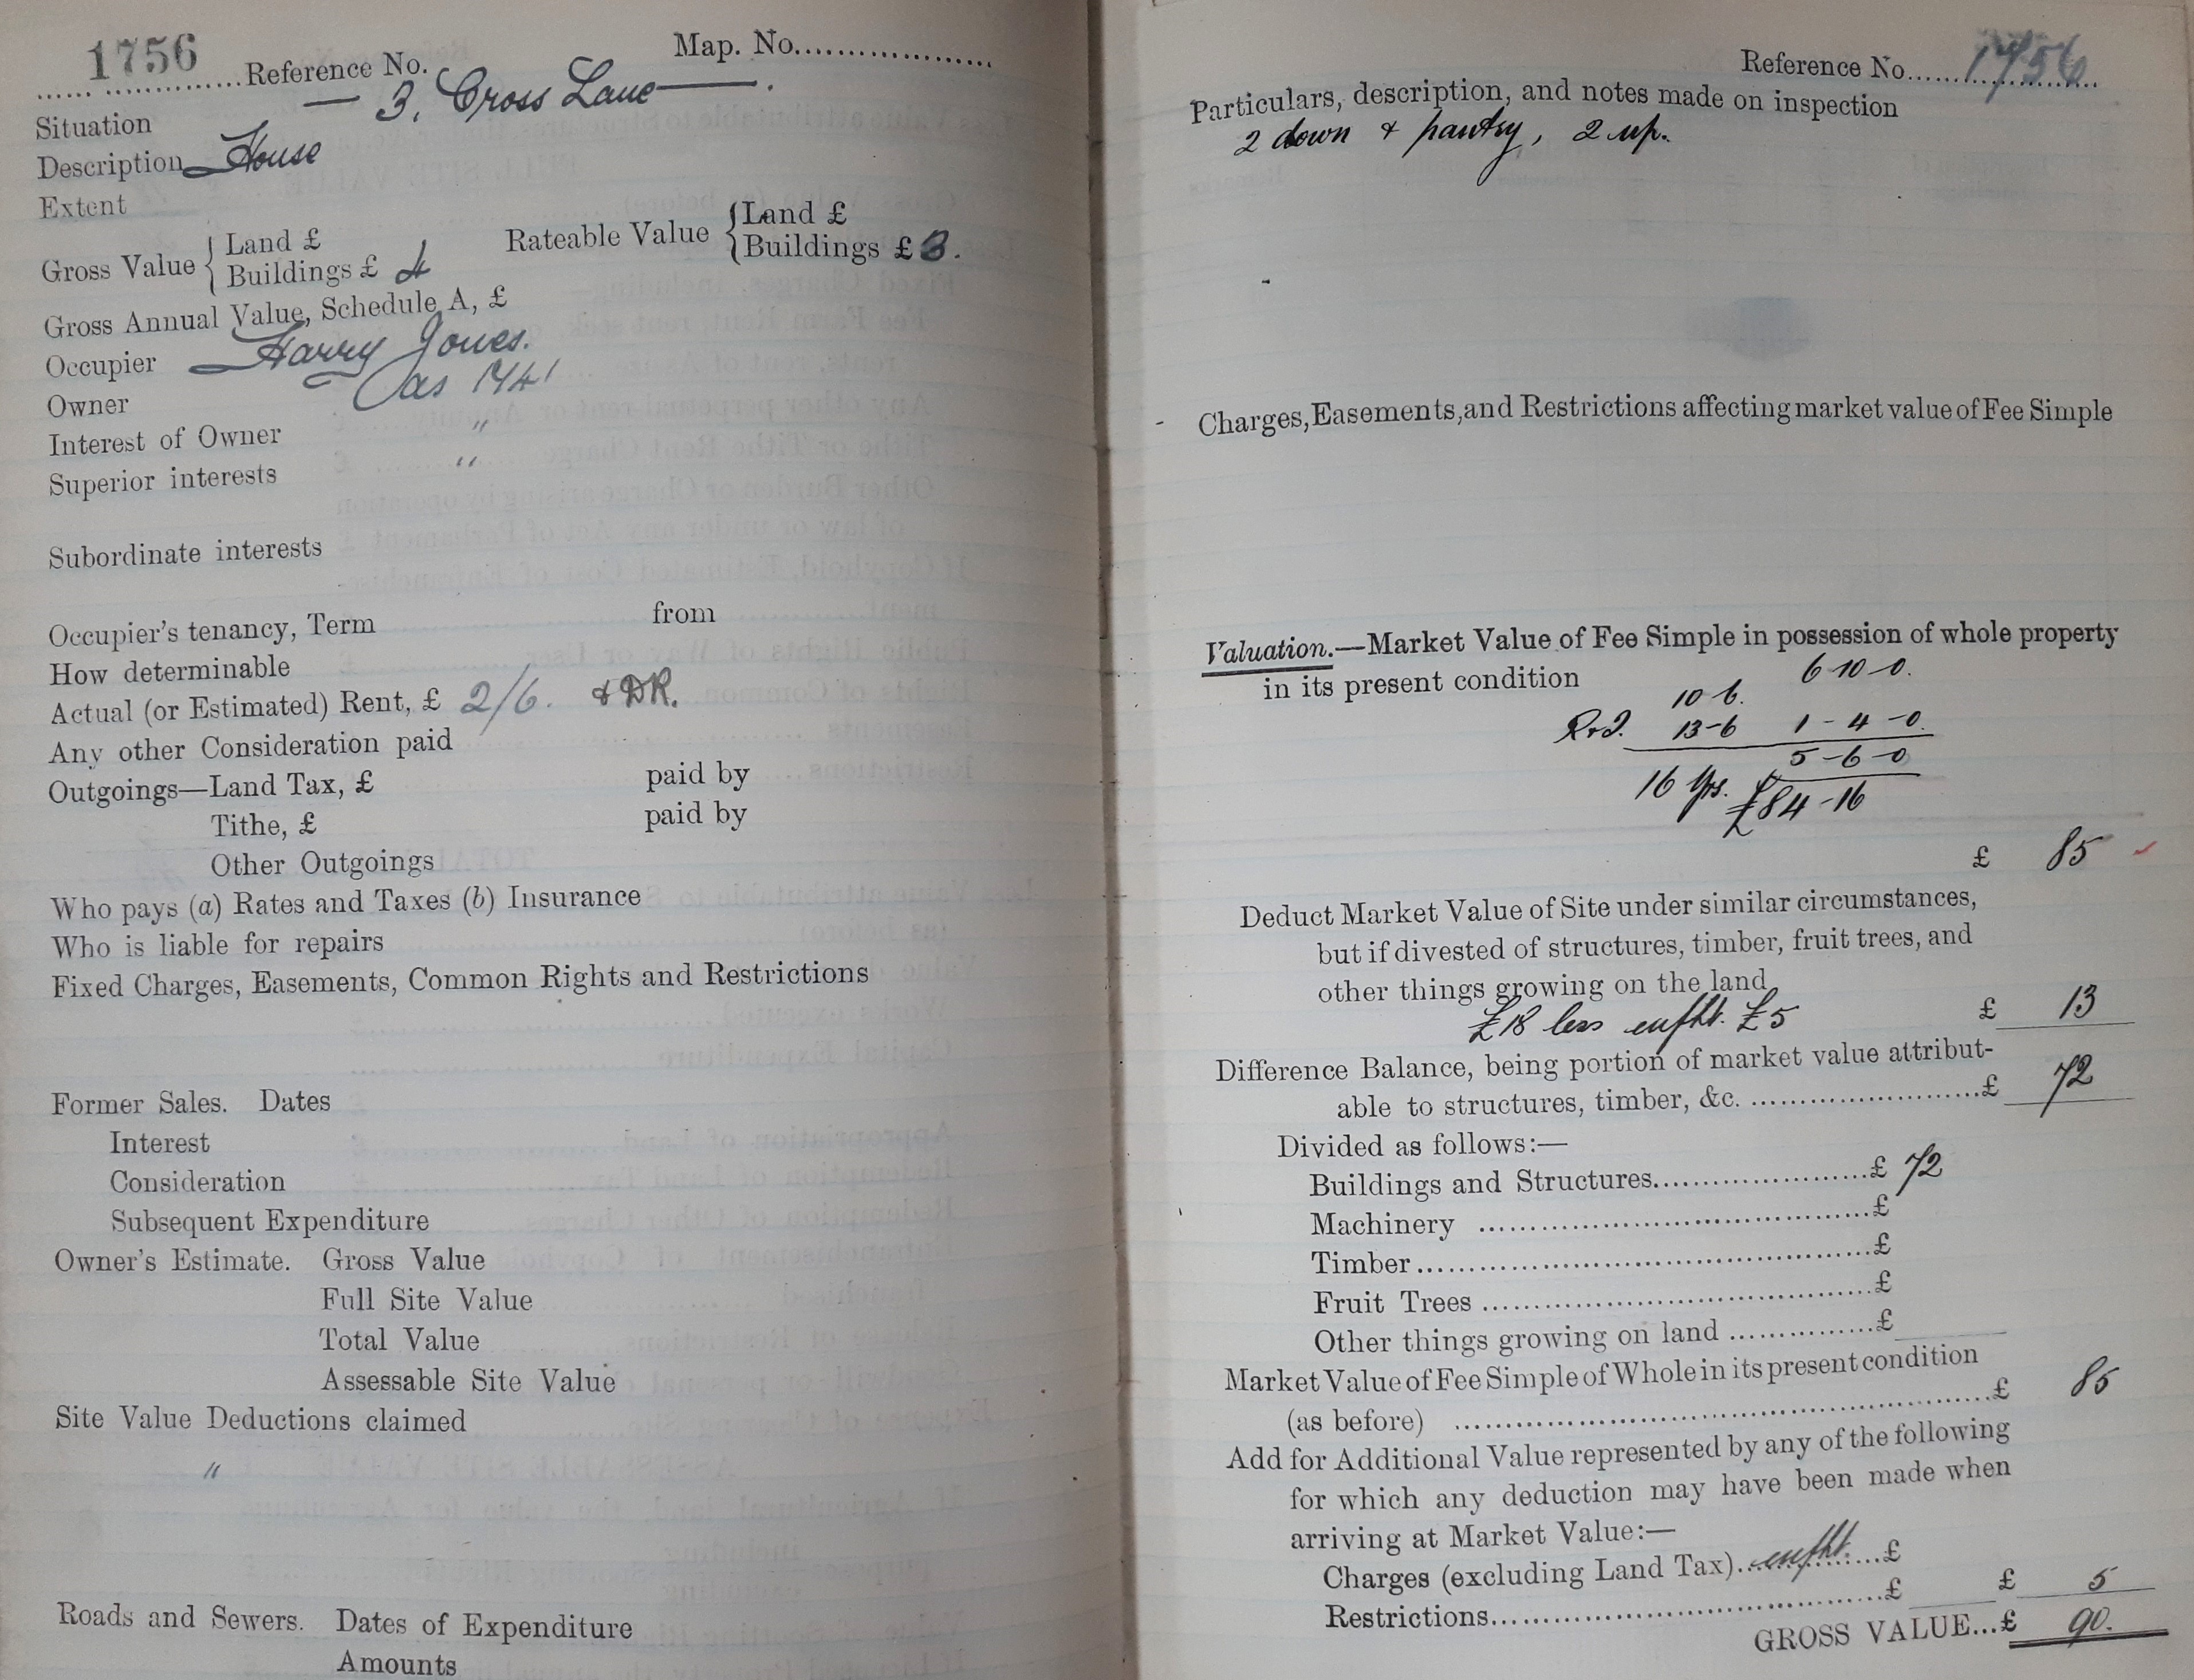 1756 Reference No. Map. No.
Situation — 3, Cross Lane —.
Description House
Extent
Gross Value { Land £
Buildings £ 4
Rateable Value { Land £
Buildings £ 3.
Gross Annual Value, Schedule A, £
Occupier Harry Jones.
Owner as 1741
Interest of Owner "
Superior interests "
Subordinate interests
Occupier's tenancy, Term from
How determinable
Actual (or Estimated) Rent, £ 2/6. & DR.
Any other Consideration paid
Outgoings—Land Tax, £ paid by
Tithe, £ paid by
Other Outgoings
Who pays (a) Rates and Taxes (b) Insurance
Who is liable for repairs
Fixed Charges, Easements, Common Rights and Restrictions
Former Sales. Dates
Interest
Consideration
Subsequent Expenditure
Owner's Estimate. Gross Value
Full Site Value
Total Value
Assessable Site Value
Site Value Deductions claimed
"
Roads and Sewers. Dates of Expenditure
Amounts
Reference No. 1756
Particulars, description, and notes made on inspection
2 down & pantry, 2 up.
Charges, Easements, and Restrictions affecting market value of Fee Simple
Valuation.—Market Value of Fee Simple in possession of whole property
in its present condition 6-10-0.
10-6.
R&I. 13-6 1-4-0.
5-6-0
16 yrs. £84-16
£ 85
Deduct Market Value of Site under similar circumstances,
but if divested of structures, timber, fruit trees, and
other things growing on the land
£18 less enfht. £5 £ 13
Difference Balance, being portion of market value attribut-
able to structures, timber, &c. £ 72
Divided as follows:—
Buildings and Structures £ 72
Machinery £
Timber £
Fruit Trees £
Other things growing on land £
Market Value of Fee Simple of Whole in its present condition
(as before) £ 85
Add for Additional Value represented by any of the following
for which any deduction may have been made when
arriving at Market Value:—
Charges (excluding Land Tax) enfht. £
Restrictions £ £ 5
GROSS VALUE...£ 90.